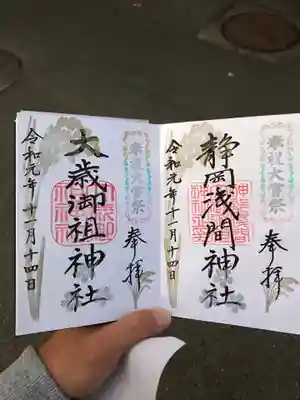 奉祝大嘗祭
奉拝
静岡浅間神社
令和元年十一月十四日
奉祝大嘗祭
奉拝
大歳御祖神社
令和元年十一月十四日